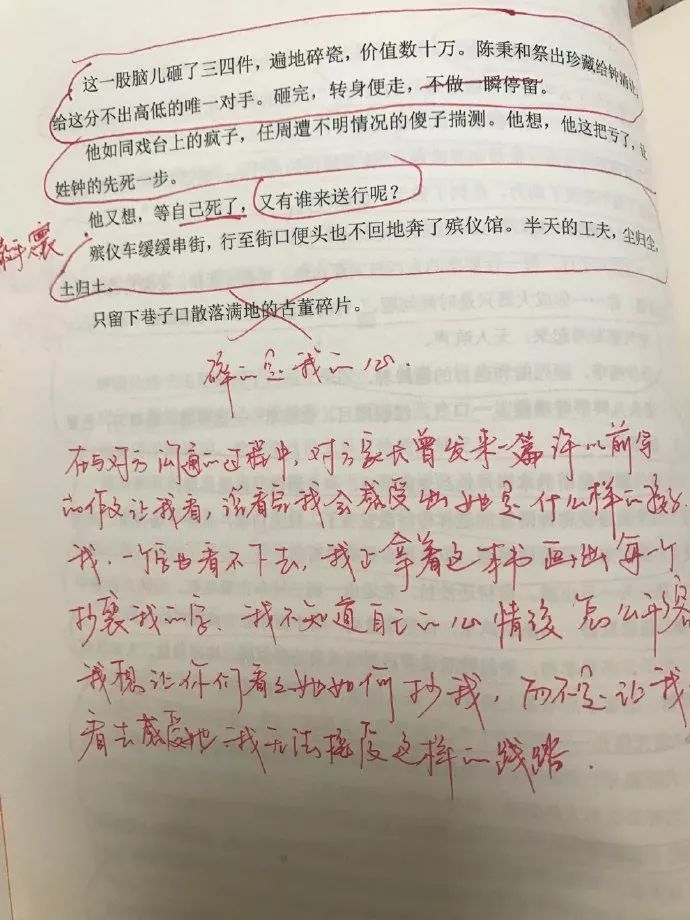 这一股脑儿砸了三四件，遍地碎瓷，价值数十万。陈秉和祭出珍藏给钟
给这分不出高低的唯一对手。砸完，转身便走，不做一瞬停留。
他如同戏台上的疯子，任周遭不明情况的傻子揣测。他想，他这把亏了，让
姓钟的先死一步。
他又想，等自己死了，又有谁来送行呢？
殡仪车缓缓串街，行至街口便头也不回地奔了殡仪馆。半天的工夫，尘归尘，
土归土。
只留下巷子口散落满地的古董碎片。
碎的是我的心.
在与对方沟通的过程中，对方家长曾发来一篇许以前写
的作文让我看，说看后我会感受出她是什么样的孩子
我，一个字也看不下去，我正拿着这本书画出每一个
抄袭我的字. 我不知道自己的心情该怎么平缓
我想让你们看看她如何抄我，而不是让我
看去感受她. 我无法接受这样的践踏.